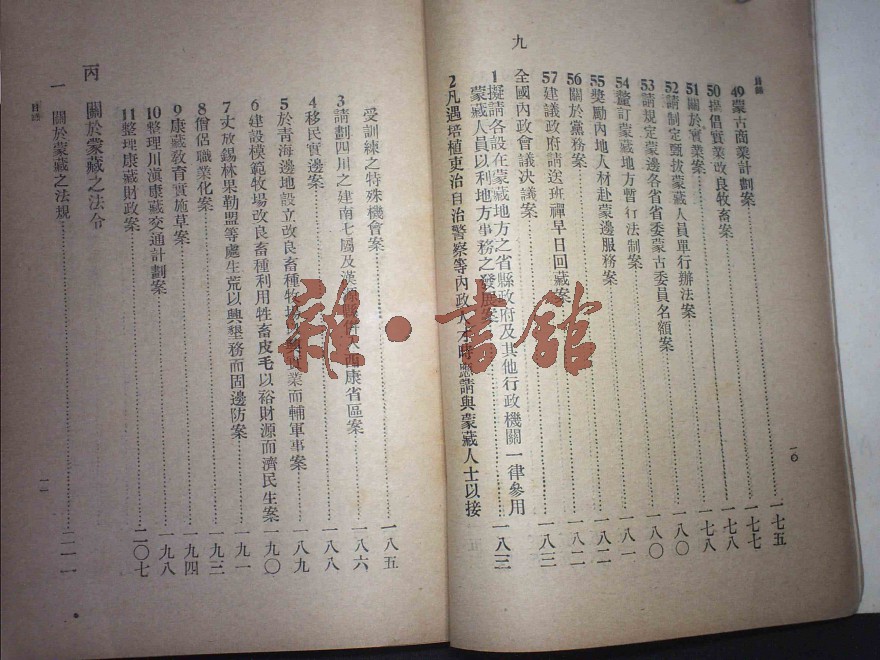 目錄
49蒙古商業計劃案 一七五
50提倡實業改良牧畜案 一七七
51關於實業案 一七八
52請制定甄拔蒙藏人員單行辦法案 一七八
53請規定蒙邊各省省委蒙古委員名額案 一八〇
54釐訂蒙藏地方暫行法制案 一八〇
55獎勵內地人材赴蒙邊服務案 一八一
56關於黨務案 一八二
57建議政府請送班禪早日回藏案 一八二
九 全國內政會議決議案 一八三
1擬請各設在蒙藏地方之省縣政府及其他行政機關一律參用
蒙藏人員以利地方事務之發展案 一八三
2凡遇培植吏治自治警察等內政人才時應請與蒙藏人士以接
一〇
受訓練之特殊機會案 一八五
3請劃四川之建南七屬及漢源縣併入西康省區案 一八六
4移民實邊案 一八八
5於青海邊地設立改良畜種牧場以業而輔軍事案 一八九
6建設模範牧場改良畜種利用牲畜皮毛以裕財源而濟民生案 一九〇
7丈放錫林果勒盟等處生荒以興墾務而固邊防案 一九一
8僧侶職業化案 一九三
9康藏教育實施草案 一九四
10整理川滇康藏交通計劃案 一九八
11整理康藏財政案 二〇七
丙 關於蒙藏之法令
一 關於蒙藏之法規 二一一
目錄
一一
雜·書館